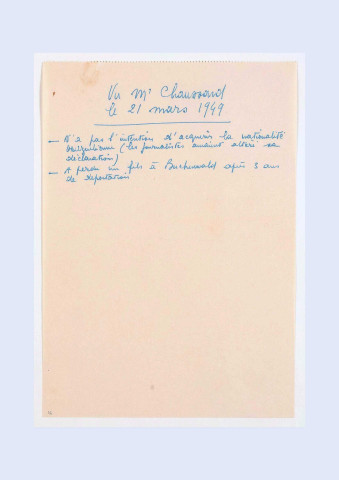 Vu Mr Chaussard
le 21 mars 1949
— N'a pas l'intention d'acquérir la nationalité
(les journalistes auraient altéré sa
déclaration)
— A perdu un fils à Buchenwald après 3 ans
de déportation